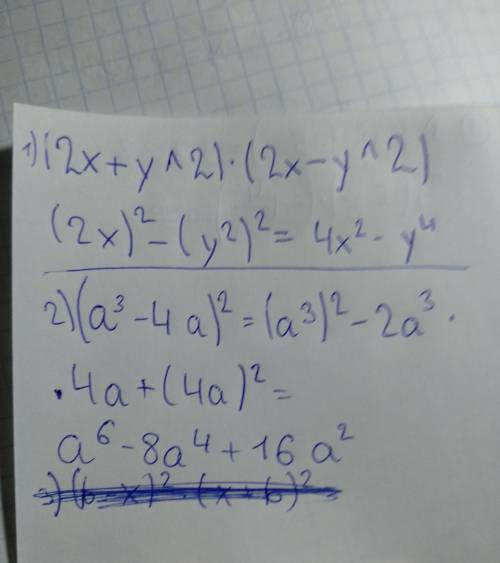 1) (2x+y^2)·(2x-y^2)
(2x)²-(y²)²= 4x²-y⁴
2) (a³-4a)²=(a³)²-2a³·
·4a+(4a)²=
a⁶-8a⁴+16a²